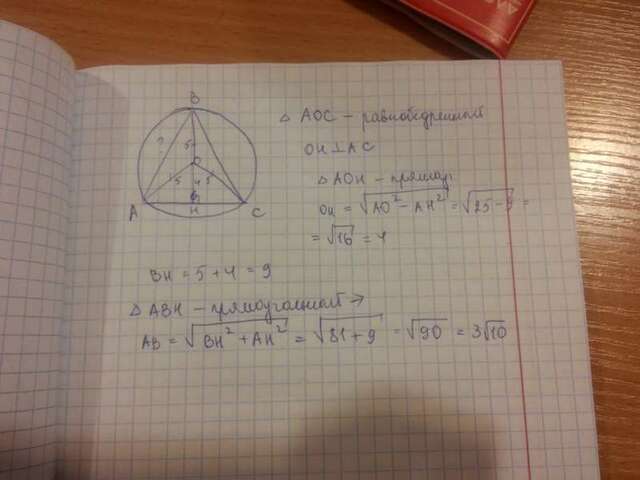 B
?
5
O
5
4
5
A
H
C
△ AOC – равнобедренный
OH ⊥ AC
△ AOH – прямоуг.
OH = √(AO² – AH²) = √(25 – 9) =
= √16 = 4
BH = 5 + 4 = 9
△ ABH – прямоугольный →
AB = √(BH² + AH²) = √(81 + 9) = √90 = 3√10